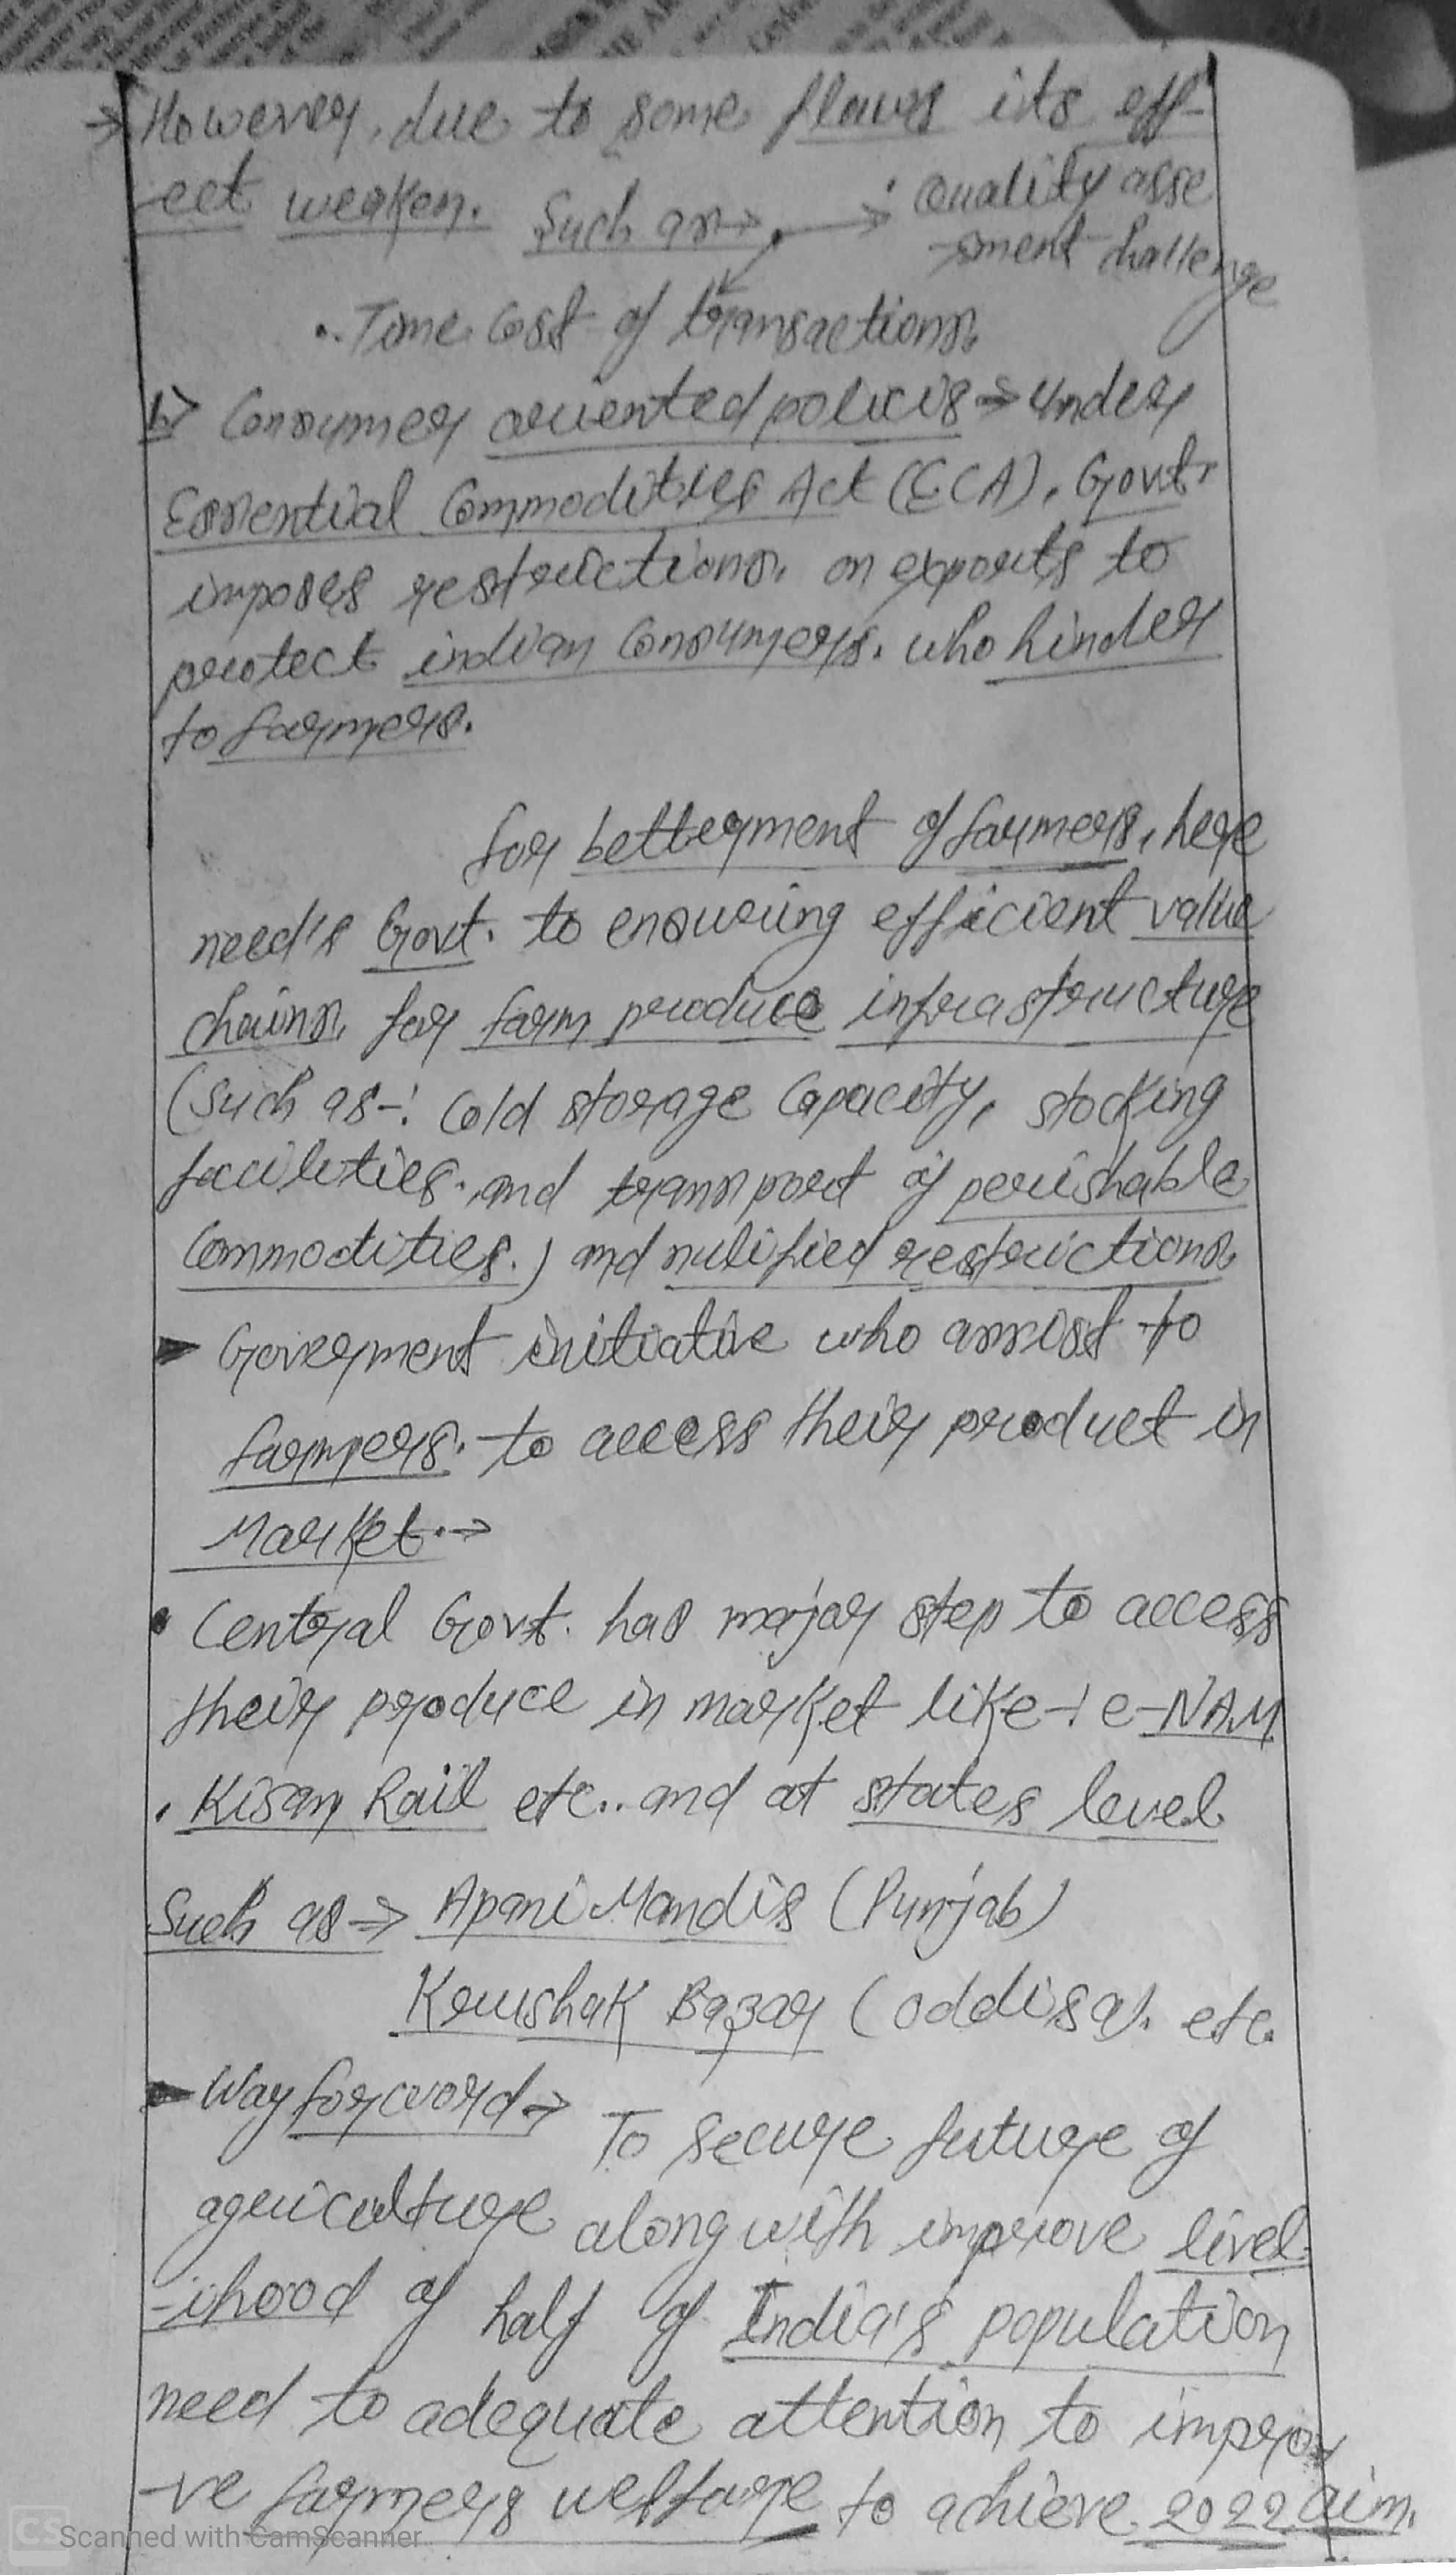 → However, due to some flaws its eff-
ect weaken. Such as → • Quality asse
-sment challenge
• Time Cost of transactions.
b> Consumer oriented policis ⇒ Under
Essential Commodities Act (ECA), Govt.
imposes restrictions. on exports to
protect indian Consumers. who hinder
to farmers.
for betterment of farmers, here
need's Govt. to ensuring efficient value
chains, for farm produce infrastructure
(Such as -: Cold storage Capacity, stocking
facilities. and transport of perishable
Commodities.) and nulified restrictions.
► Goverment initiative who assist to
farmers. to access their product in
Market. →
• Central Govt. has major step to access
their produce in market like -: e-NAM
, Kisan Rail etc.. and at states level
Such as ⇒ Apani Mandis (Punjab)
Krushak Bazar (oddisa). etc.
► Way forword → To secure future of
agriculture along with improve livel-
-ihood of half of India's population
need to adequate attention to impro
-ve farmers welfare to achieve 2022 aim.
CS Scanned with CamScanner